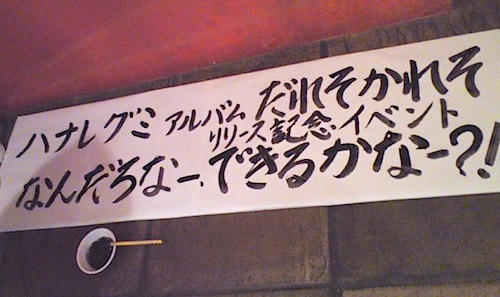 ハナレグミ アルバム だれそかれそ
リリース記念イベント
なんだろなー、できるかなー?!